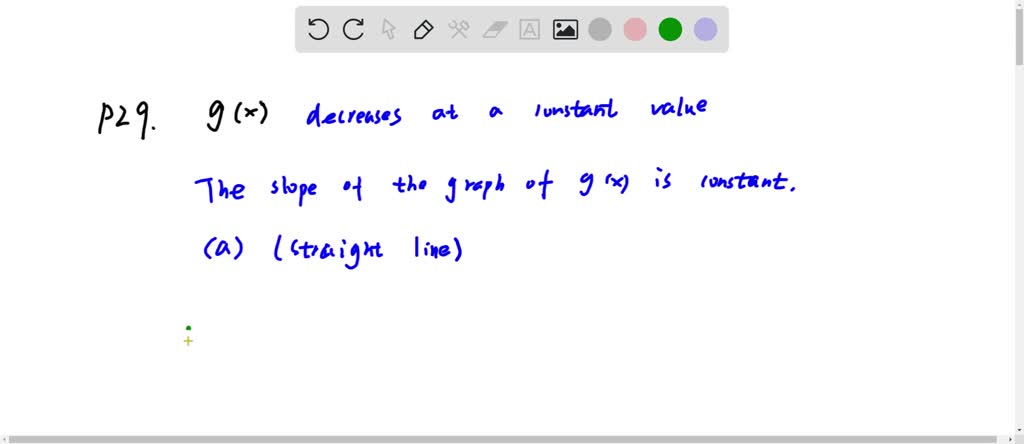 P29. g(x) decreases at a constant value
The slope of the graph of g(x) is constant.
(a) (straight line)